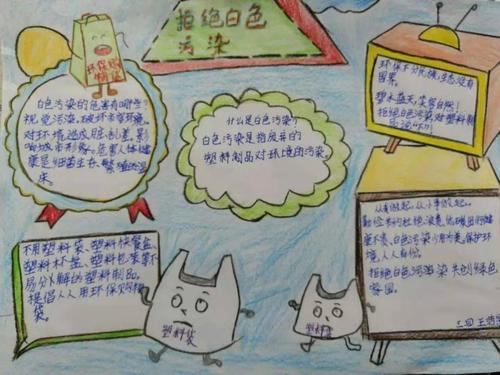 拒绝白色
污染
环保购
物袋
白色污染的危害有哪些?
视觉污染,破坏市容环境。
对环境造成脏乱差,影
响城市形象。危害人体健
康是细菌生存、繁殖的温
床。
什么是白色污染?
白色污染是指废弃的
塑料制品对环境的污染。
环保不分民族,生态没有
国界。
碧水蓝天,
拒绝白色污染对塑料制
品说
从我做起,从小事做起。
白色污染
境,人人有份。
拒绝白色污染共创绿色
家园。
不用塑料袋、塑料快餐盒、
塑料杯盘、塑料包装等不
易分解的塑料制品。
提倡人人用环保购物
袋。
塑料袋
塑料袋